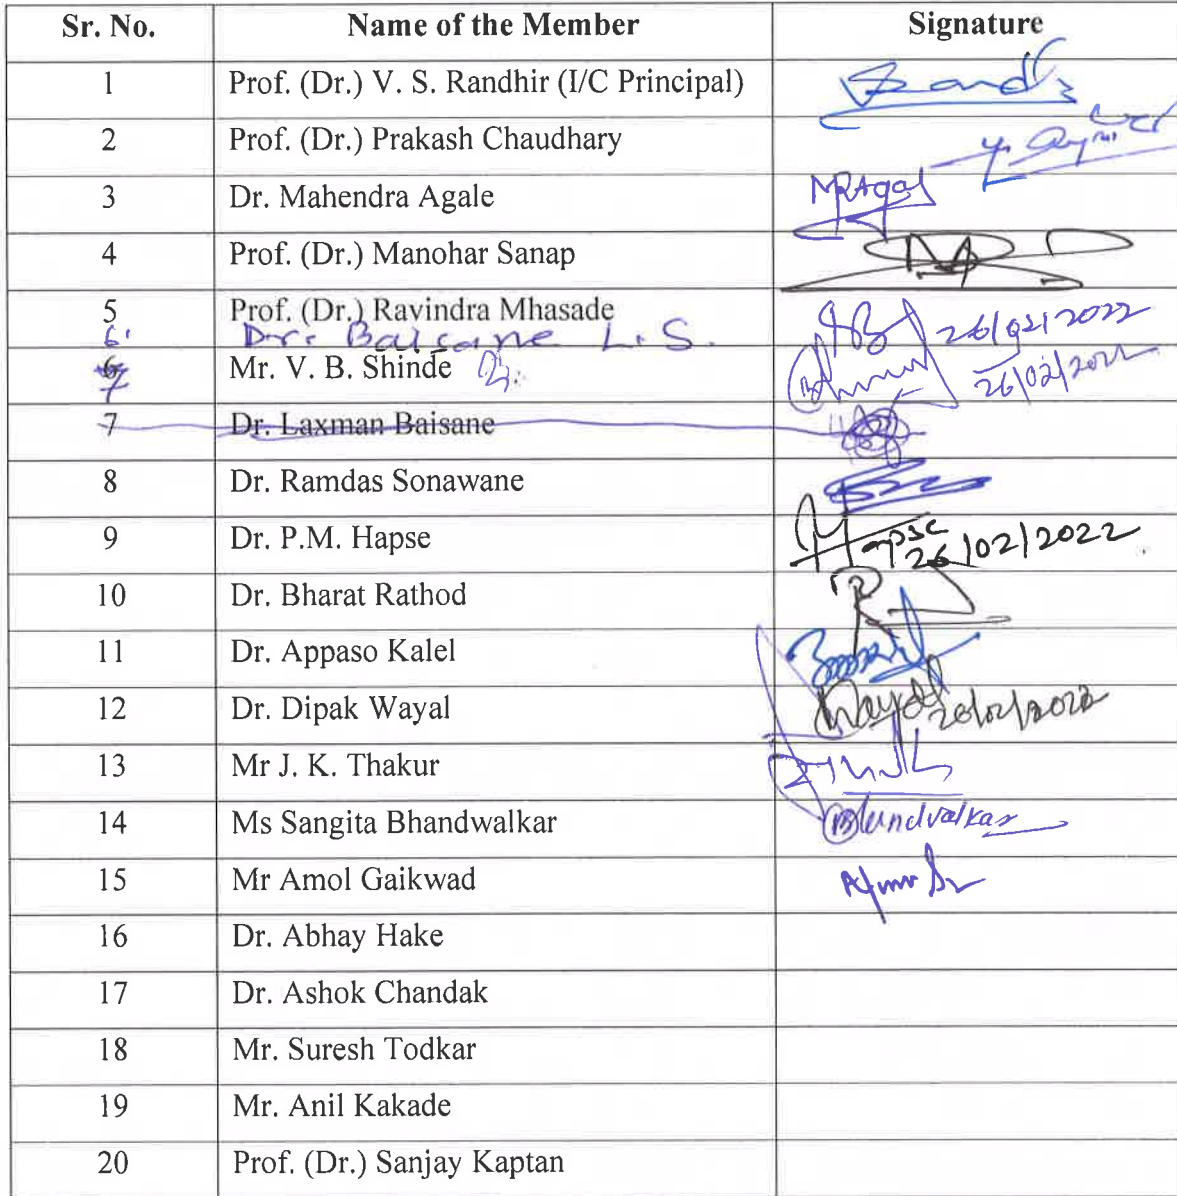 Sr. No. Name of the Member Signature
1 Prof. (Dr.) V. S. Randhir (I/C Principal)
2 Prof. (Dr.) Prakash Chaudhary
3 Dr. Mahendra Agale MRAgal
4 Prof. (Dr.) Manohar Sanap
5 Prof. (Dr.) Ravindra Mhasade 26/02/2022
6. Dr. Baisane L. S. 26/02/2022
6 7 Mr. V. B. Shinde
7 Dr. Laxman Baisane
8 Dr. Ramdas Sonawane
9 Dr. P.M. Hapse 26/02/2022
10 Dr. Bharat Rathod
11 Dr. Appaso Kalel
12 Dr. Dipak Wayal Wayal 26/02/2022
13 Mr J. K. Thakur
14 Ms Sangita Bhandwalkar
15 Mr Amol Gaikwad
16 Dr. Abhay Hake
17 Dr. Ashok Chandak
18 Mr. Suresh Todkar
19 Mr. Anil Kakade
20 Prof. (Dr.) Sanjay Kaptan